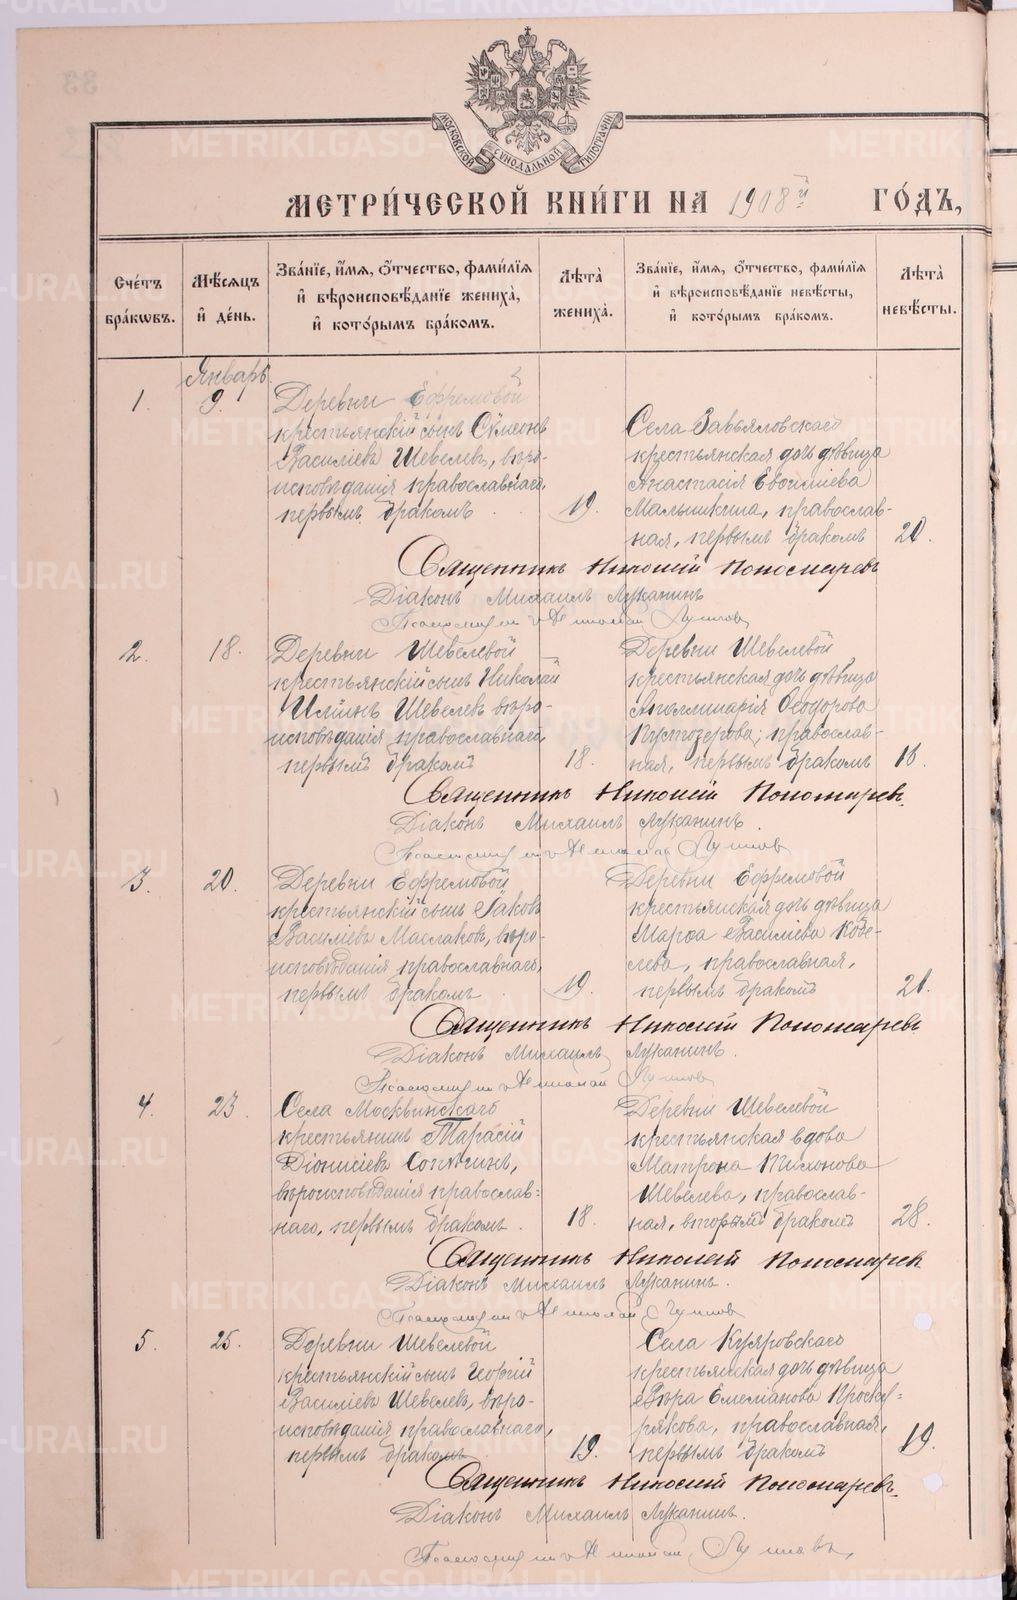 МОСКОВСКОЙ СѴНОДАЛЬНОЙ ТИПОГРАФІИ
МЕТРИ́ЧЕСКОЙ КНИ́ГИ НА 1908й ГО́ДЪ,
Сче́тъ бра́кѡвъ.
Мѣ́сяцъ и҆ де́нь.
Зва́нїе, и҆́мѧ, ѻ҆́тчество, фами́лїѧ
и҆ вѣроисповѣ́данїе жениха̀,
и҆ кото́рымъ бра́комъ.
Лѣ́та̀ жениха̀.
Зва́нїе, и҆́мѧ, ѻ҆́тчество, фами́лїѧ
и҆ вѣроисповѣ́данїе невѣ́сты,
и҆ кото́рымъ бра́комъ.
Лѣ́та̀ невѣ́сты.
Январь.
1.
9.
Деревни Ефремовой
крестьянскій сынъ Сѵмеонъ
Василіевъ Шевелевъ, вѣро-
исповѣданія православнаго,
первымъ бракомъ
19.
Села Завьяловскаго
крестьянская дочь дѣвица
Анастасія
Малышкина, православ-
ная, первымъ бракомъ
20.
Священникъ Николай Пономаревъ
Діаконъ Михаилъ Луканинъ
Николай
2.
18.
Деревни Шевелевой
крестьянскій сынъ Николай
Иліинъ Шевелевъ вѣро-
исповѣданія православнаго,
первымъ бракомъ
18.
Деревни Шевелевой
крестьянская дочь дѣвица
Аполлинарія Ѳеодорова
Пустозерова, православ-
ная, первымъ бракомъ
16.
Священникъ Николай Пономаревъ.
Діаконъ Михаилъ Луканинъ.
Николай
3.
20.
Деревни Ефремовой
крестьянскій сынъ Іаковъ
Василіевъ Маслаковъ, вѣро-
исповѣданія православнаго,
первымъ бракомъ
19.
Деревни Ефремовой
крестьянская дочь дѣвица
Марѳа Василіева Кобе-
лева, православная,
первымъ бракомъ
21.
Священникъ Николай Пономаревъ
Діаконъ Михаилъ Луканинъ.
Николай
4.
23.
Села Москвинскаго
крестьянинъ Тарасій
Діонисіевъ
вѣроисповѣданія православ-
наго, первымъ бракомъ.
18.
Деревни Шевелевой
крестьянская вдова
Матрона Тихонова
Шевелева, православ-
ная, вторымъ бракомъ
28.
Священникъ Николай Пономаревъ
Діаконъ Михаилъ Луканинъ.
Николай
5.
25.
Деревни Шевелевой
крестьянскій сынъ Георгій
Василіевъ Шевелевъ, вѣро-
исповѣданія православнаго,
первымъ бракомъ
19.
Села Куяровскаго
крестьянская дочь дѣвица
Вѣра Емеліанова Проску-
рякова, православная,
первымъ бракомъ
19.
Священникъ Николай Пономаревъ.
Діаконъ Михаилъ Луканинъ.
Николай
METRIKI.GASO-URAL.RU